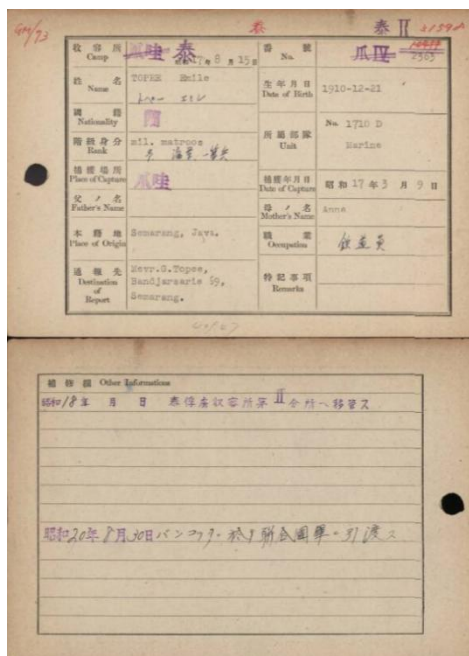 泰 泰 II
収容所 Camp 爪哇 泰 17年8月15日 番號 No. 爪IV 2303
姓名 Name TOPEE Emile
生年月日 Date of Birth 1910-12-21
國籍 Nationality 蘭
所屬部隊 Unit No. 1710 D Marine
階級身分 Rank mil. matroos 海軍一等兵
捕獲場所 Place of Capture 爪哇
捕獲年月日 Date of Capture 昭和17年3月9日
父ノ名 Father's Name
母ノ名 Mother's Name Anna
本籍地 Place of Origin Semarang, Java.
職業 Occupation
通報先 Destination of Report Mevr.G.Topee,
Bandjarsarie 59,
Semarang.
特記事項 Remarks
Other Informations
昭和18年 月 日 泰俘虜収容所第II分所ヘ移管ス
昭和20年8月30日バンコックニ於テ聯合國軍ニ引渡ス